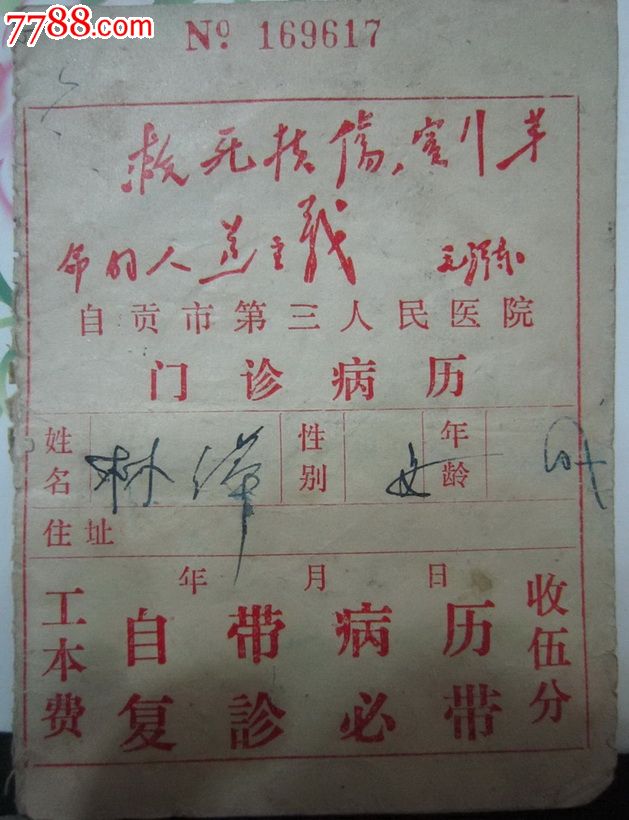 7788.com
Nº 169617
救死扶傷,实行革
命的人道主義 毛泽东
自贡市第三人民医院
门诊病历
姓名 林 性别 女 年龄
住址
年 月 日
工本费 收伍分
自带病历
复診必带